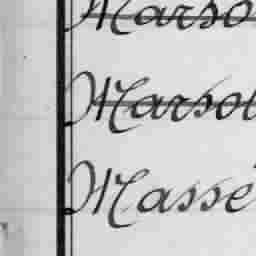 Marso
Marsol
Massé